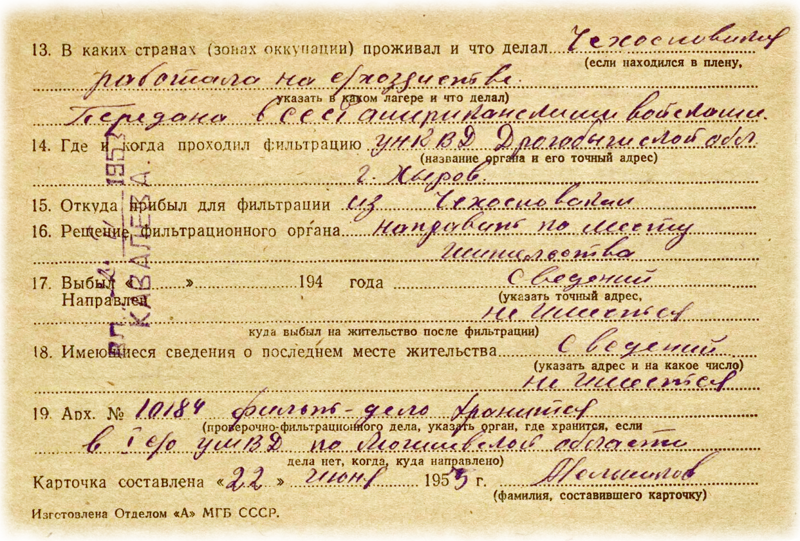 13. В каких странах (зонах оккупации) проживал и что делал Чехословакия
(если находился в плену,
работала на с/хозяйстве.
указать в каком лагере и что делал)
Передана в СССР американскими войсками.
14. Где и когда проходил фильтрацию УНКВД Дрогобычской обл.
(название органа и его точный адрес)
г. Хыров
15. Откуда прибыл для фильтрации из Чехословакии
16. Решение фильтрационного органа направить по месту
жительства
17. Выбыл « » 194 года Сведений
Направлен (указать точный адрес,
не имеется
куда выбыл на жительство после фильтрации)
18. Имеющиеся сведения о последнем месте жительства Сведений
(указать адрес и на какое число)
не имеется
19. Арх. № 10184 фильтр-дело хранится
(проверочно-фильтрационного дела, указать орган, где хранится, если
в 1 с/о УМВД по Могилевской области
дела нет, когда, куда направлено)
Карточка составлена «22» июня 1955 г.
(фамилия, составившего карточку)
Изготовлена Отделом «А» МГБ СССР.
КАВАЛЕВА.